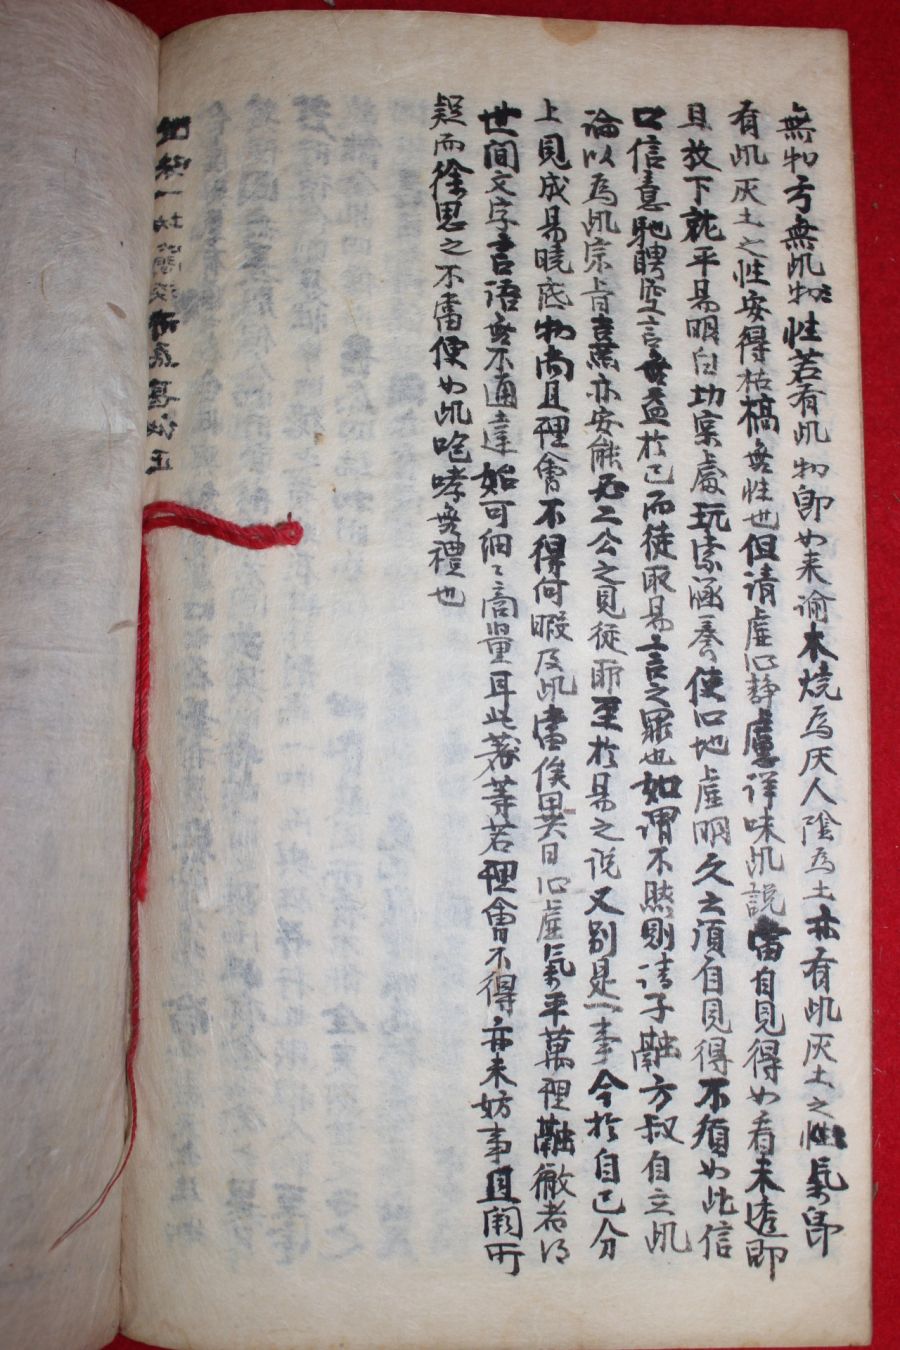 無物方無此物性若有此物即如来諭木燒為灰人陰為土亦有此灰土之性氣即
有此灰土之性安得枯槁無性也但請虛心靜慮詳味此說當自見得如看未透即
且放下就平易明白切案處玩索涵養使心地虛明久之須自見得不須如此信
口信意馳聘空言無益於己而徒取易言之罪也如謂不然則請子融方叔自立此
論以為此宗旨熹亦安能必二公之見從耶至於易之說又別是一事今於自己分
上見成易曉底物尚且理會不得何暇及此當俟異日心虛氣平萬理融徹者得
世間文字言語無不通達始可細〻商量耳此蓍等若理會不得亦未妨事且闕所
疑而徐思之不當便如此咆哮無禮也